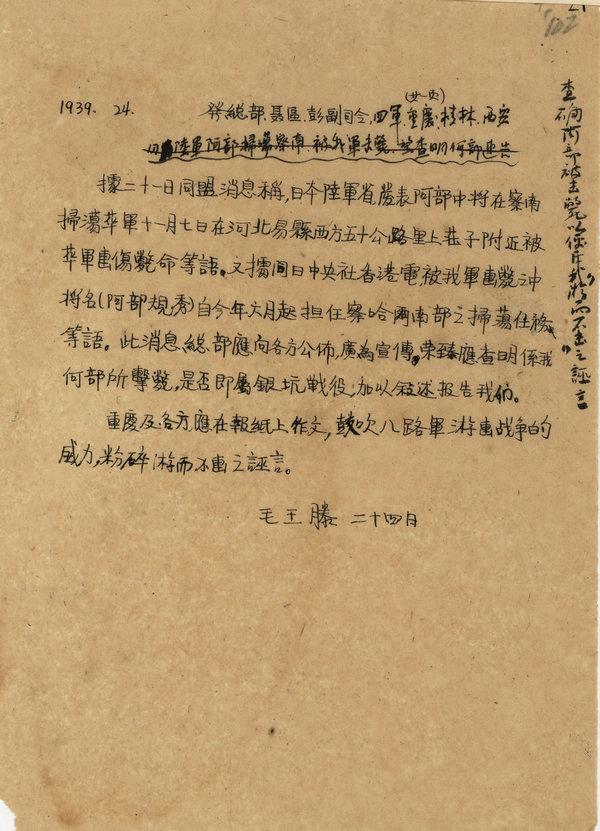 1939. 24.
發總部、聶區、彭副司令、四軍、重慶、桂林、西安
陸軍阿部掃蕩察南、被我軍擊斃、望查明何部速告
據二十一日同盟消息稱,日本陸軍省發表阿部中將在察南
掃蕩華軍十一月七日在河北易縣西方五十公路里上莊子附近被
華軍擊傷斃命等語。又據同日中央社香港電被我軍擊斃之沖
將名(阿部規秀)自今年六月起担任察哈爾南部之掃蕩任務
等語。此消息總部應向各方公佈,廣為宣傳。榮臻應查明係我
何部所擊斃,是否即屬銀坑戰役,加以敘述报告我们。
重慶及各方應在報紙上作文,鼓吹八路軍游擊战争的
威力,粉碎游而不擊之誣言。
毛 王 滕 二十四日
查确阿部被击斃以
游而不击之誣言